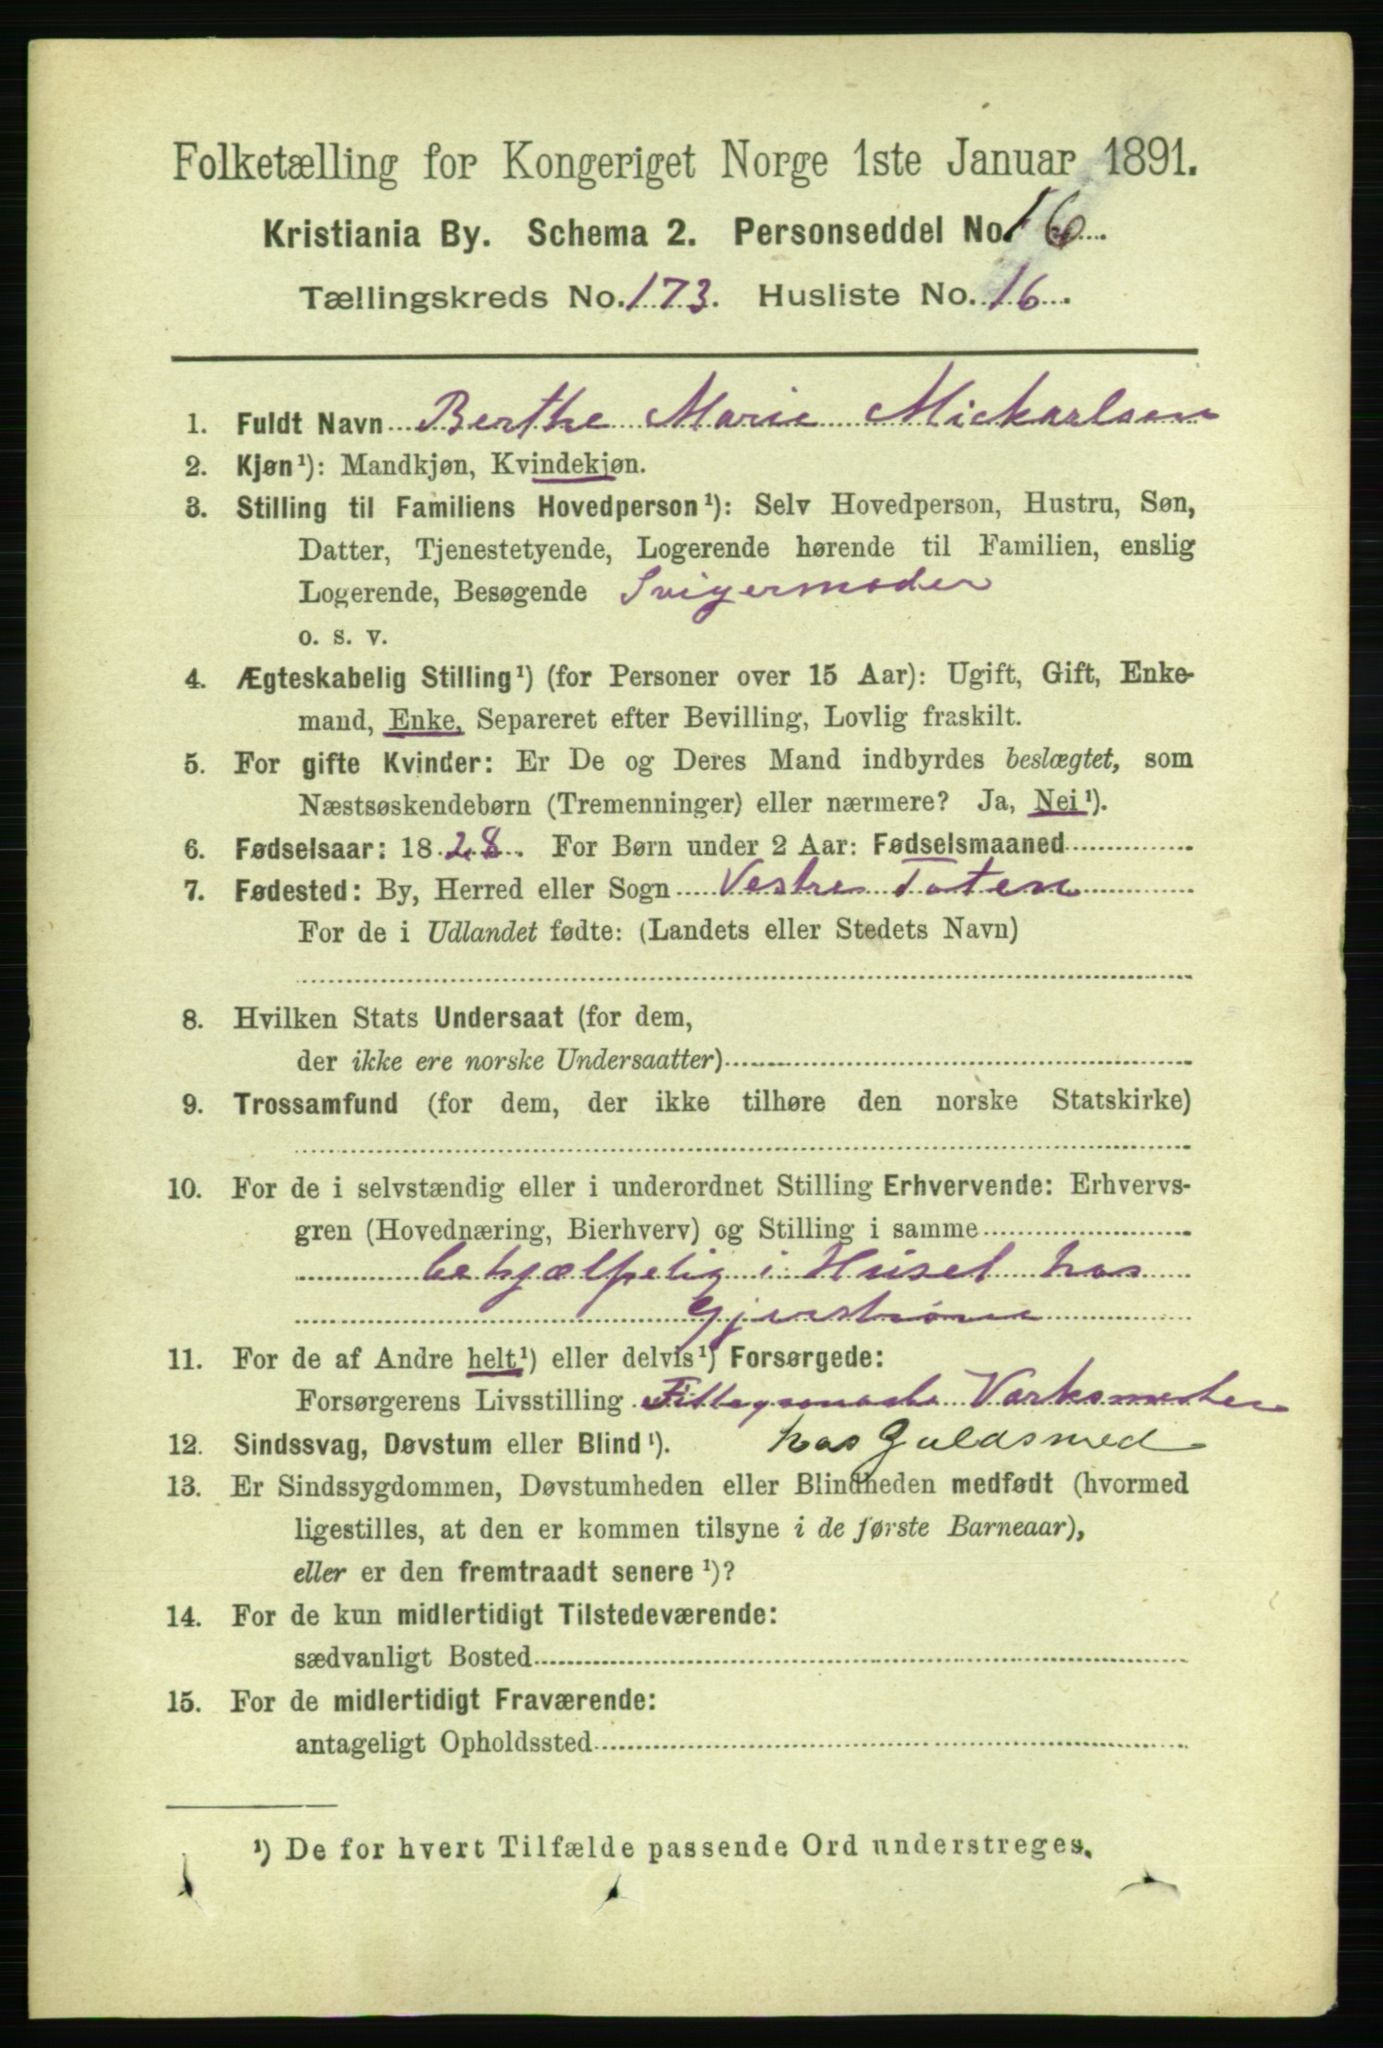 Folketælling for Kongeriget Norge 1ste Januar 1891.
Kristiania By. Schema 2. Personseddel No. 16
Tællingskreds No. 173. Husliste No. 16.
1. Fuldt Navn Berthe Marie Mickaelsen
2. Kjøn¹): Mandkjøn, Kvindekjøn.
3. Stilling til Familiens Hovedperson¹): Selv Hovedperson, Hustru, Søn,
Datter, Tjenestetyende, Logerende hørende til Familien, enslig
Logerende, Besøgende Svigermoder
o. s. v.
4. Ægteskabelig Stilling¹) (for Personer over 15 Aar): Ugift, Gift, Enke-
mand, Enke, Separeret efter Bevilling, Lovlig fraskilt.
5. For gifte Kvinder: Er De og Deres Mand indbyrdes beslægtet, som
Næstsøskendebørn (Tremenninger) eller nærmere? Ja, Nei¹).
6. Fødselsaar: 1828. For Børn under 2 Aar: Fødselsmaaned
7. Fødested: By, Herred eller Sogn Vestre Toten
For de i Udlandet fødte: (Landets eller Stedets Navn)
8. Hvilken Stats Undersaat (for dem,
der ikke ere norske Undersaatter)
9. Trossamfund (for dem, der ikke tilhøre den norske Statskirke)
10. For de i selvstændig eller i underordnet Stilling Erhvervende: Erhvervs-
gren (Hovednæring, Bierhverv) og Stilling i samme
behjælpelig i Huset hos
11. For de af Andre helt¹) eller delvis¹) Forsørgede:
Forsørgerens Livsstilling Værksmester
12. Sindssvag, Døvstum eller Blind¹). hos Guldsmed
13. Er Sindssygdommen, Døvstumheden eller Blindheden medfødt (hvormed
ligestilles, at den er kommen tilsyne i de første Barneaar),
eller er den fremtraadt senere¹)?
14. For de kun midlertidigt Tilstedeværende:
sædvanligt Bosted
15. For de midlertidigt Fraværende:
antageligt Opholdssted
¹) De for hvert Tilfælde passende Ord understreges.